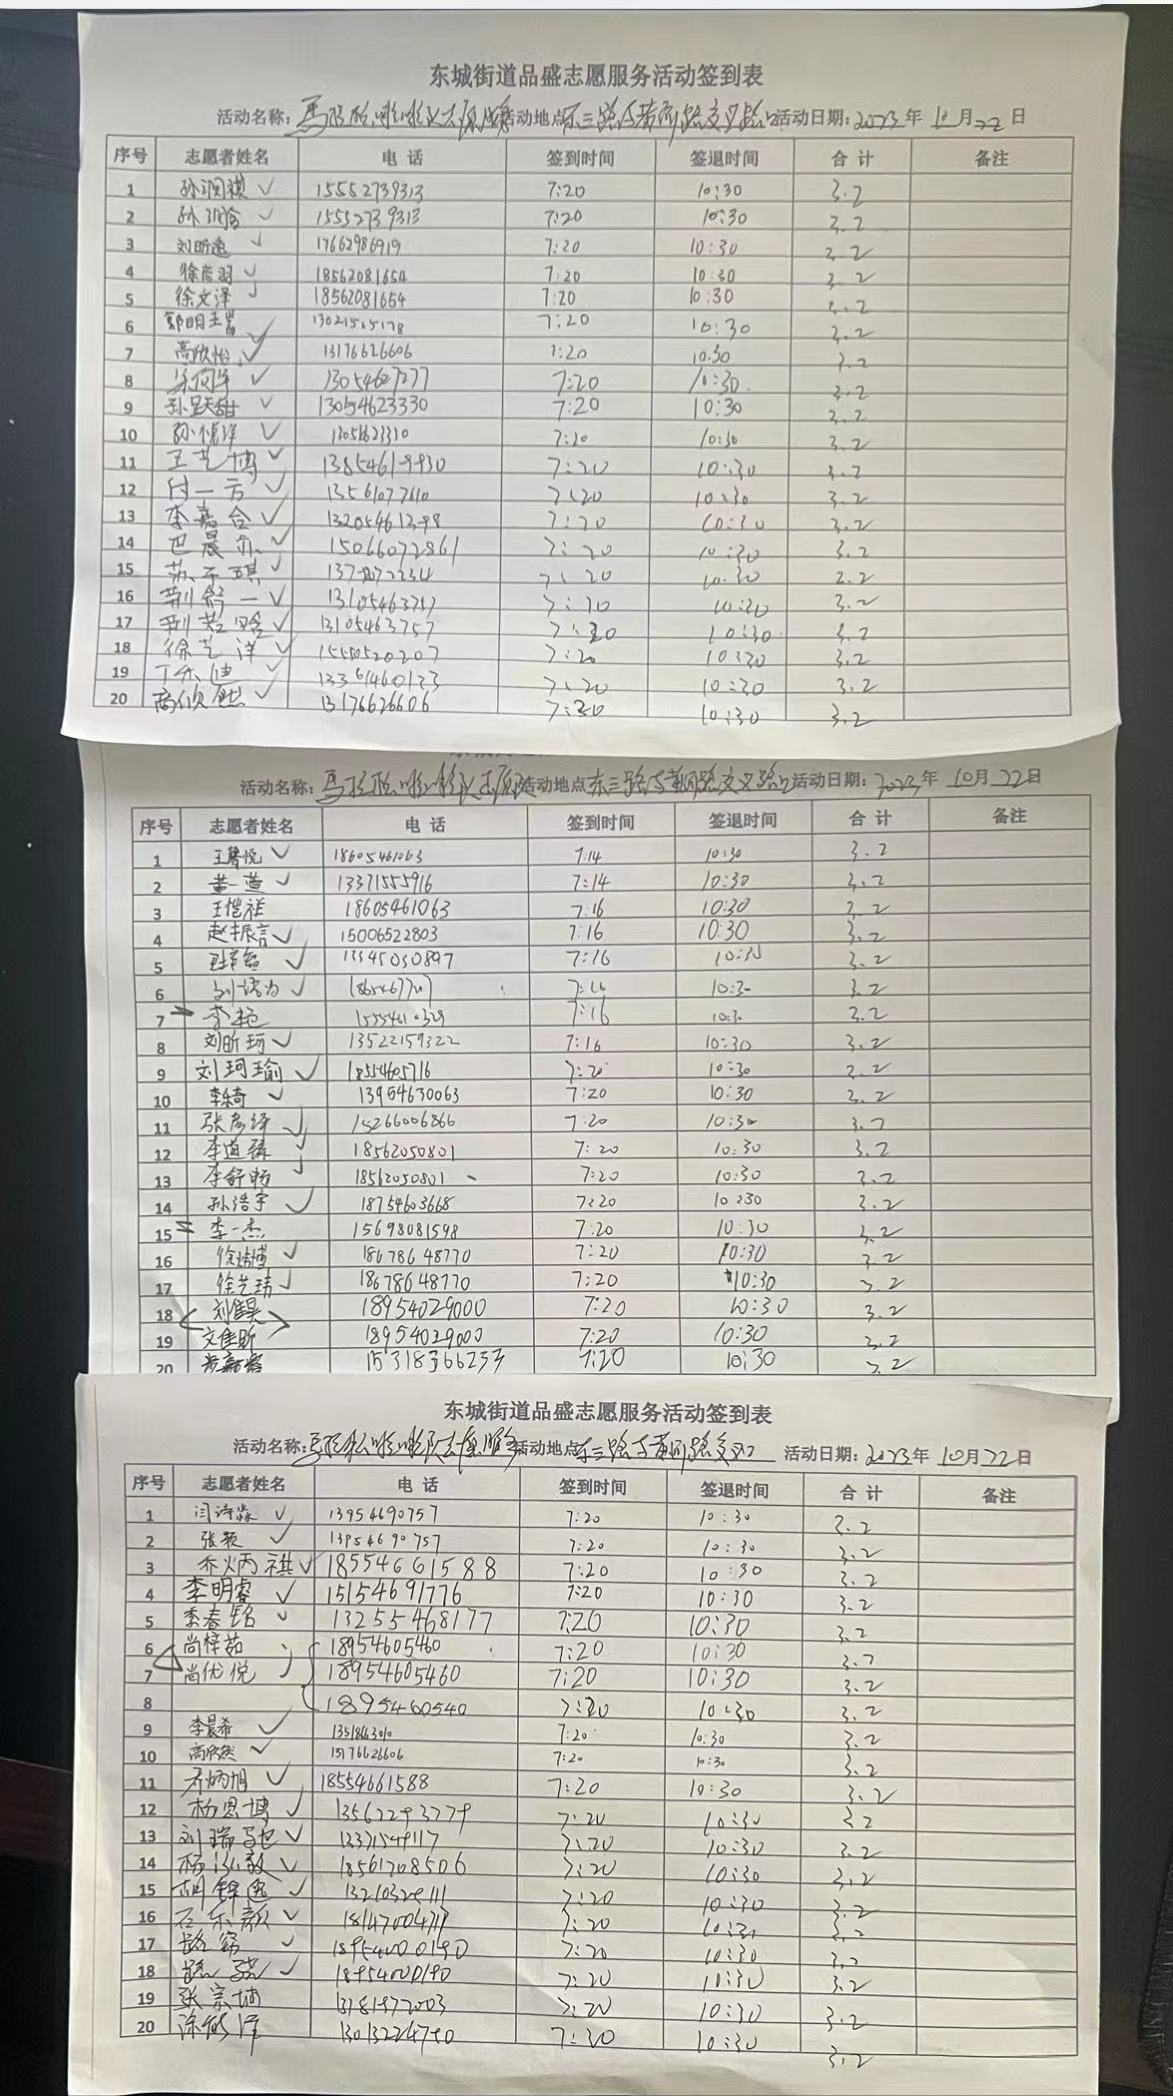 东城街道品盛志愿服务活动签到表
活动名称: 活动地点 东三路与黄河路交叉路口 活动日期: 2023年 10月22日
序号 志愿者姓名 电话 签到时间 签退时间 合计 备注
1 孙润祺 ✓ 15552739313 7:20 10:30 3.2
2 ✓ 15552739313 7:20 10:30 3.2
3 刘昕逸 ✓ 17662986919 7:20 10:30 3.2
4 徐彦羽 ✓ 18562081654 7:20 10:30 3.2
5 徐文泽 ✓ 18562081654 7:20 10:30 3.2
6 ✓ 7:20 10:30 3.2
7 高欣怡 ✓ 13176626606 7:20 10:30 3.2
8 ✓ 13054627277 7:20 10:30 3.2
9 ✓ 13054623330 7:20 10:30 3.2
10 ✓ 7:20 10:30 3.2
11 王艺博 ✓ 7:20 10:30 3.2
12 付一方 ✓ 13561077610 7:20 10:30 3.2
13 李嘉合 ✓ 7:20 10:30 3.2
14 巴晨亦 ✓ 15066072861 7:20 10:30 3.2
15 苏子琪 ✓ 7:20 10:30 3.2
16 荆舒一 ✓ 13105463757 7:20 10:30 3.2
17 荆若晗 ✓ 13105463757 7:20 10:30 3.2
18 徐艺洋 ✓ 1550520207 7:20 10:30 3.2
19 ✓ 13361460133 7:20 10:30 3.2
20 高欣然 ✓ 13176626606 7:20 10:30 3.2
活动名称: 活动地点 东三路与黄河路交叉路口 活动日期: 2023年 10月22日
序号 志愿者姓名 电话 签到时间 签退时间 合计 备注
1 王馨悦 ✓ 18605461063 7:14 10:30 3.2
2 ✓ 13371555916 7:14 10:30 3.2
3 王恺祥 18605461063 7:16 10:30 3.2
4 赵振言 ✓ 15006522803 7:16 10:30 3.2
5 ✓ 13345030897 7:16 10:30 3.2
6 ✓ 7:16 10:30 3.2
7 李艳 7:16 10:30 3.2
8 刘昕珂 ✓ 13522159322 7:16 10:30 3.2
9 刘珂瑜 ✓ 18554605716 7:20 10:30 3.2
10 ✓ 13954630063 7:20 10:30 3.2
11 张彦泽 ✓ 15266006866 7:20 10:30 3.2
12 李道臻 ✓ 18562050801 7:20 10:30 3.2
13 李舒畅 ✓ 18562050801 7:20 10:30 3.2
14 孙浩宇 ✓ 18754603668 7:20 10:30 3.2
15 李一杰 15698081598 7:20 10:30 3.2
16 ✓ 18678648770 7:20 10:30 3.2
17 徐艺瑋 ✓ 18678648770 7:20 10:30 3.2
18 18954029000 7:20 10:30 3.2
19 文佳昕 18954029000 7:20 10:30 3.2
20 15318366233 7:20 10:30 3.2
东城街道品盛志愿服务活动签到表
活动名称: 活动地点 东三路与黄河路交叉口 活动日期: 2023年 10月22日
序号 志愿者姓名 电话 签到时间 签退时间 合计 备注
1 闫诗淼 ✓ 13954690757 7:20 10:30 3.2
2 张颖 ✓ 13954690757 7:20 10:30 3.2
3 乔炳祺 ✓ 18554661588 7:20 10:30 3.2
4 李明睿 ✓ 15154691776 7:20 10:30 3.2
5 李春铭 ✓ 13255468177 7:20 10:30 3.2
6 尚梓茹 ✓ 18954605460 7:20 10:30 3.2
7 尚优悦 ✓ 18954605460 7:20 10:30 3.2
8 1895460540 7:20 10:30 3.2
9 李晨希 ✓ 7:20 10:30 3.2
10 高欣然 ✓ 13176626606 7:20 10:30 3.2
11 乔炳旭 ✓ 18554661588 7:20 10:30 3.2
12 杨恩博 ✓ 13562293779 7:20 10:30 3.2
13 刘瑞 ✓ 7:20 10:30 3.2
14 杨泓毅 ✓ 18561708506 7:20 10:30 3.2
15 胡锦逸 ✓ 7:20 10:30 3.2
16 石东颢 ✓ 7:20 10:30 3.2
17 路窈 ✓ 18954000190 7:20 10:30 3.2
18 ✓ 18954000190 7:20 10:30 3.2
19 张宗 7:20 10:30 3.2
20 13013224790 7:30 10:30 3.2